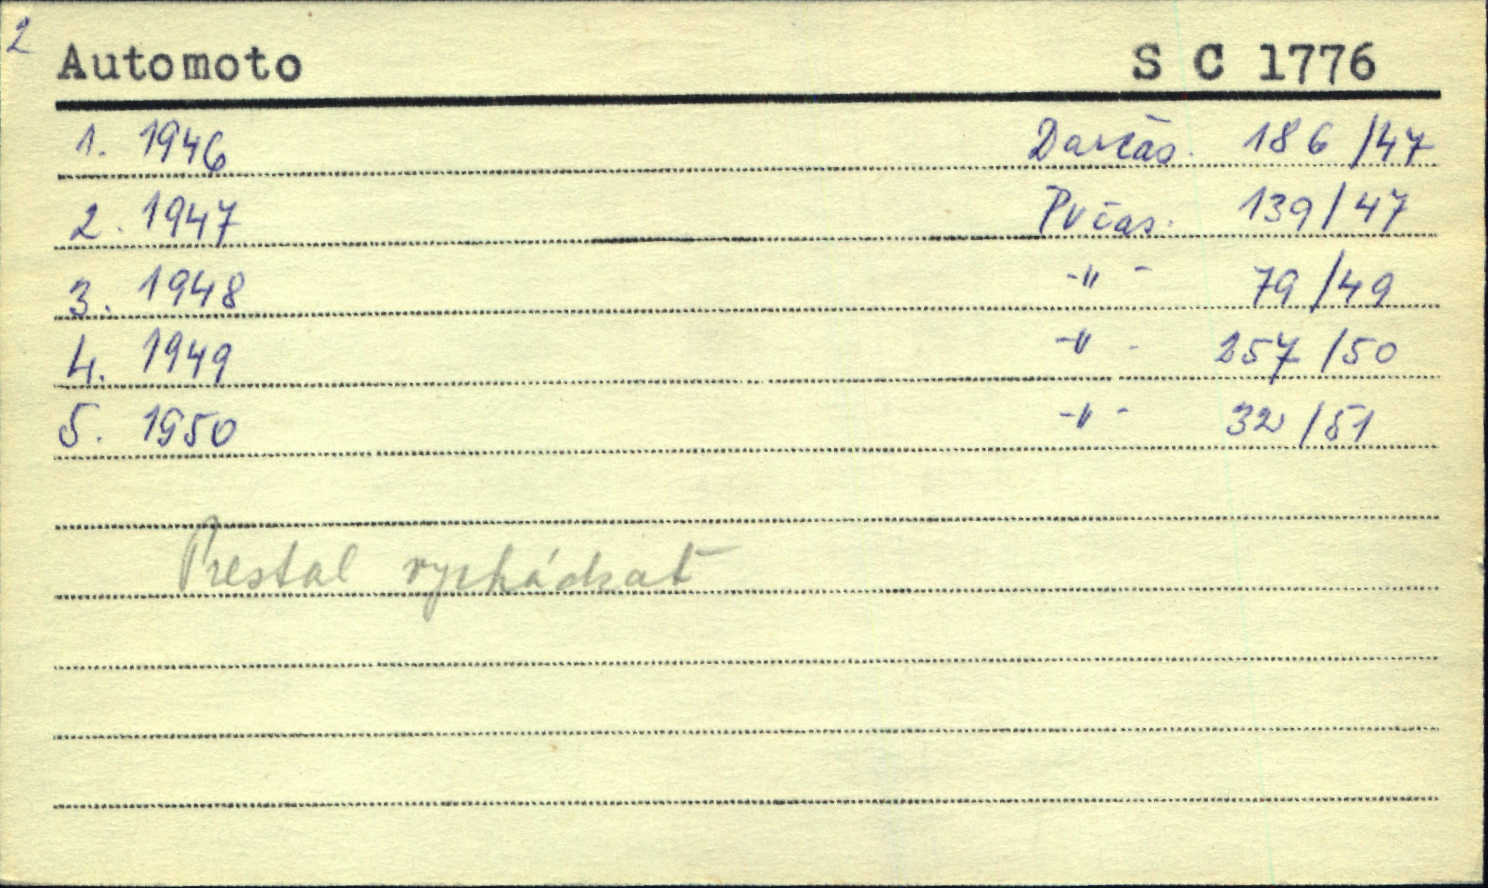 2
Automoto S C 1776
1. 1946 Darčas. 186/47
2. 1947 PVčas. 139/47
3. 1948 -"- 79/49
4. 1949 -"- 257/50
5. 1950 -"- 32/51
Prestal vychádzat